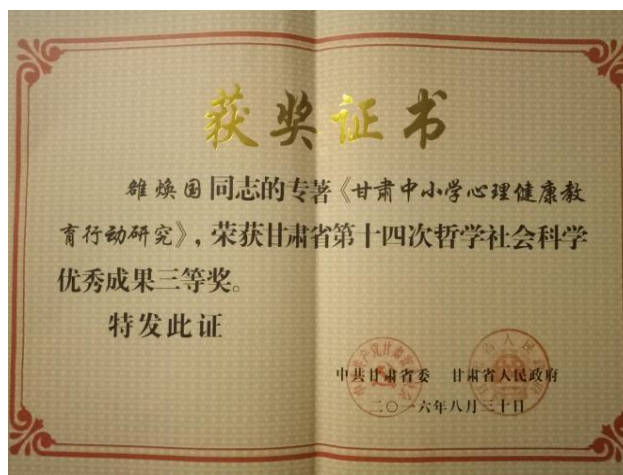 获奖证书
雒焕国同志的专著《甘肃中小学心理健康教
育行动研究》，荣获甘肃省第十四次哲学社会科学
优秀成果三等奖。
特发此证
中共甘肃省委 甘肃省人民政府
二〇一六年八月三十日